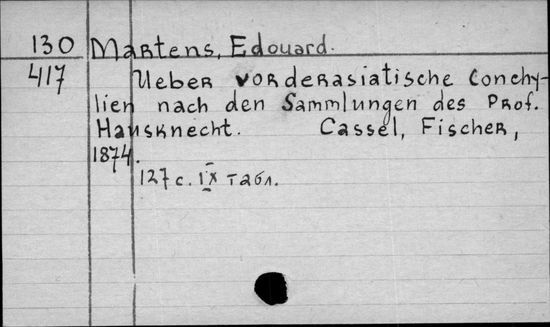 130 Martens, Edouard.
417 Ueber vorderasiatische Conchy-
lien nach den Sammlungen des Prof.
Hausknecht. Cassel, Fischer,
1874.
127 с. IX табл.